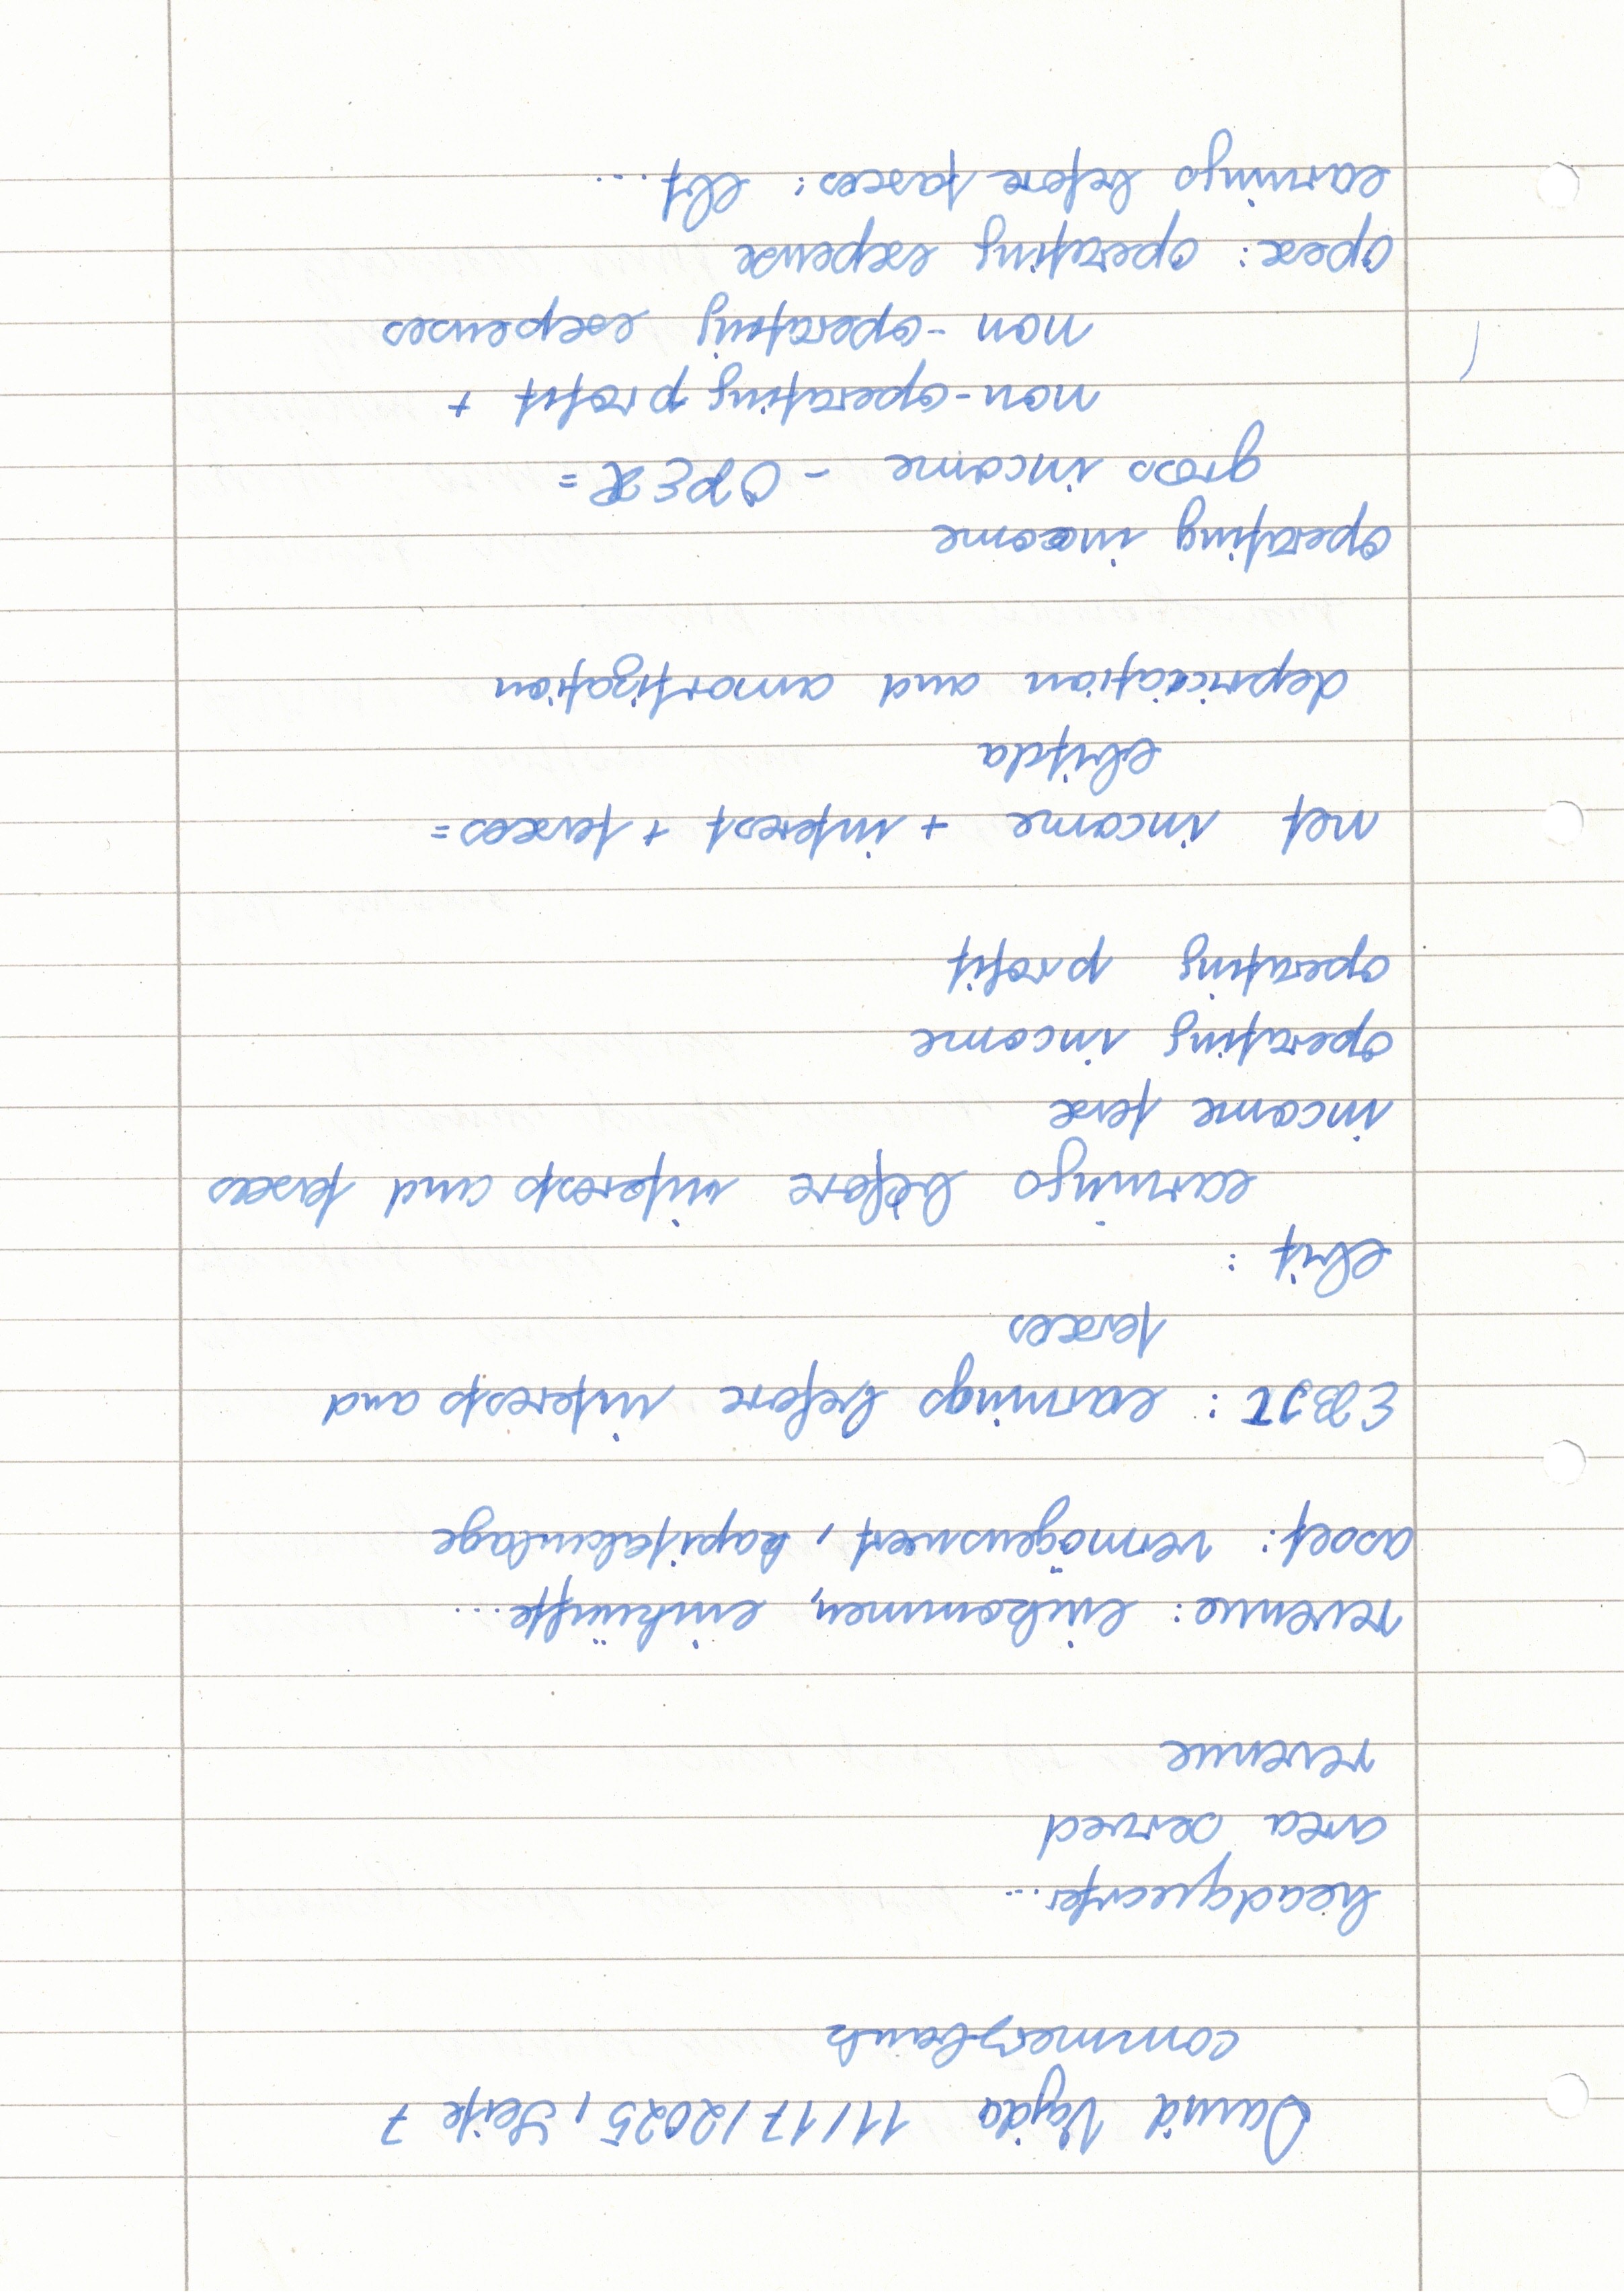 David Vajda 11/17/2025, Seite 7
commerzbank
headquarter...
area served
revenue
revenue: einkommen, einkünfte...
asset: vermögenswert, kapitaleinlage
EBIT: earnings before interesp and
taxes
ebit:
earnings before interesp and taxes
income tax
operating income
operating profit
net income + interest + taxes =
ebitda
depriciation and amortization
operating income
gross income - OPEX =
non-operating profit +
non-operating expenses
opex: operating expense
earnings before taxes: ebt...